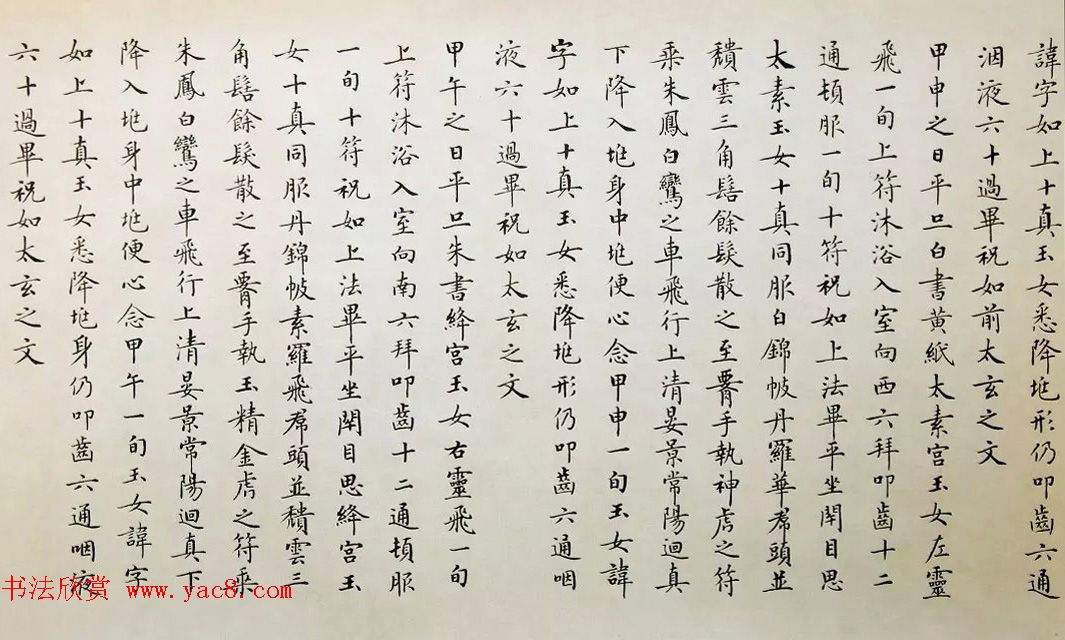 諱字如上十真玉女悉降坵形仍叩齒六通
洇液六十過畢祝如前太玄之文
甲申之日平旦白書黄紙太素宫玉女左靈
飛一旬上符沐浴入室向西六拜叩齒十二
通頓服一旬十符祝如上法畢平坐閇目思
太素玉女十真同服白錦帔丹羅華帬頭並
穨雲三角髻餘髮散之至𦝫手執神虎之符
乘朱鳳白鸞之車飛行上清晏景常陽迴真
下降入坵身中坵便心念甲申一旬玉女諱
字如上十真玉女悉降坵形仍叩齒六通咽
液六十過畢祝如太玄之文
甲午之日平旦朱書絳宫玉女右靈飛一旬
上符沐浴入室向南六拜叩齒十二通頓服
一旬十符祝如上法畢平坐閇目思絳宫玉
女十真同服丹錦帔素羅飛帬頭並穨雲三
角髻餘髮散之至𦝫手執玉精金虎之符乘
朱鳳白鸞之車飛行上清晏景常陽迴真下
降入坵身中坵便心念甲午一旬玉女諱字
如上十真玉女悉降坵身仍叩齒六通咽液
六十過畢祝如太玄之文
书法欣赏 www.yac8.com